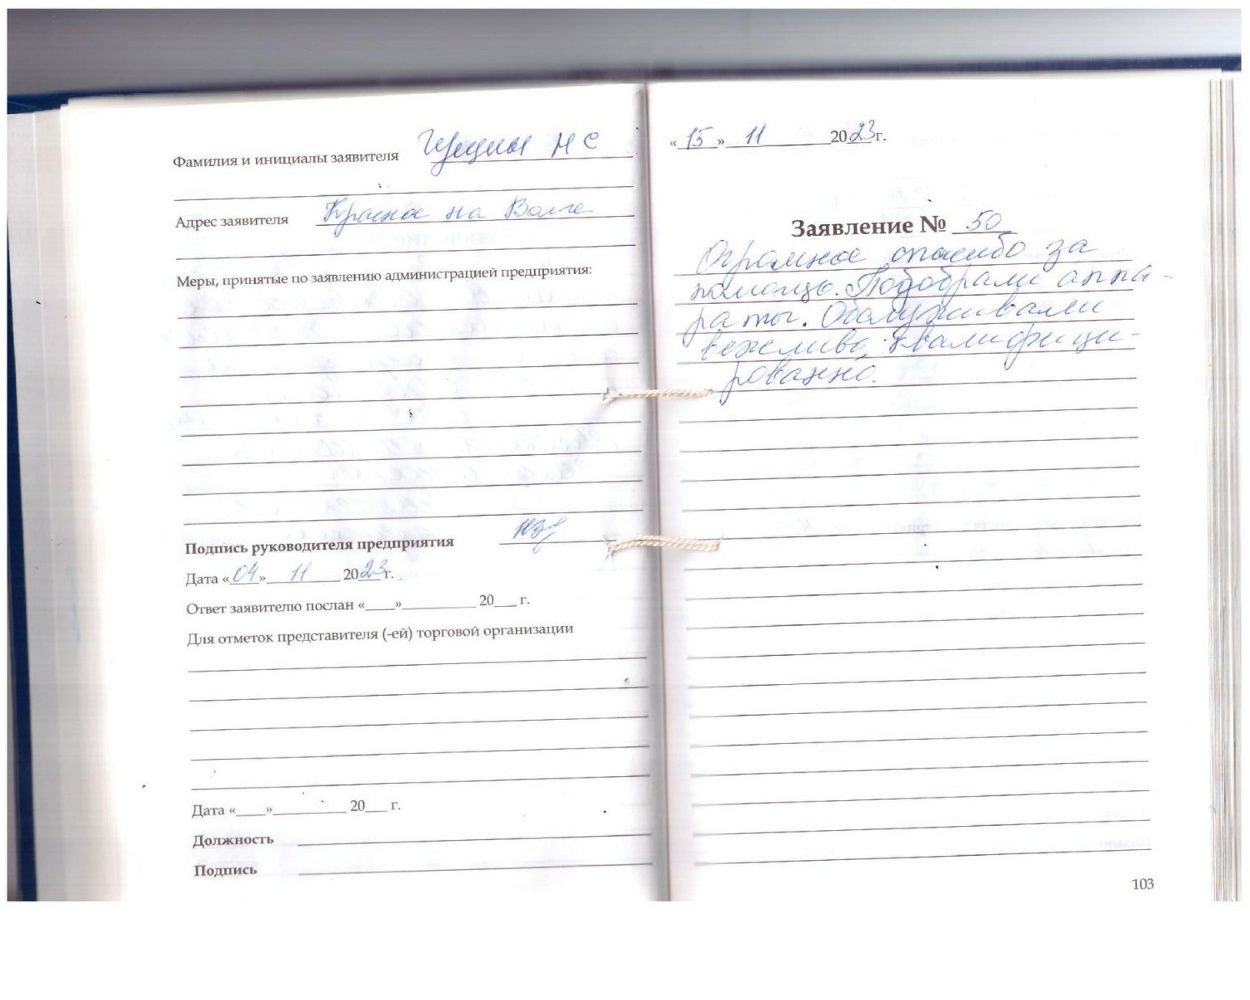 Фамилия и инициалы заявителя Н С
Адрес заявителя Красное на Волге
Меры, принятые по заявлению администрацией предприятия:
Подпись руководителя предприятия
Дата «04» 11 2023 г.
Ответ заявителю послан «____»__________ 20___ г.
Для отметок представителя (-ей) торговой организации
Дата «____»__________ 20___ г.
Должность
Подпись
«15» 11 2023г.
Заявление № 50
Огромное спасибо за
помощь. Подобрали аппа-
раты. Обслуживали
вежливо, квалифици-
рованно.
103